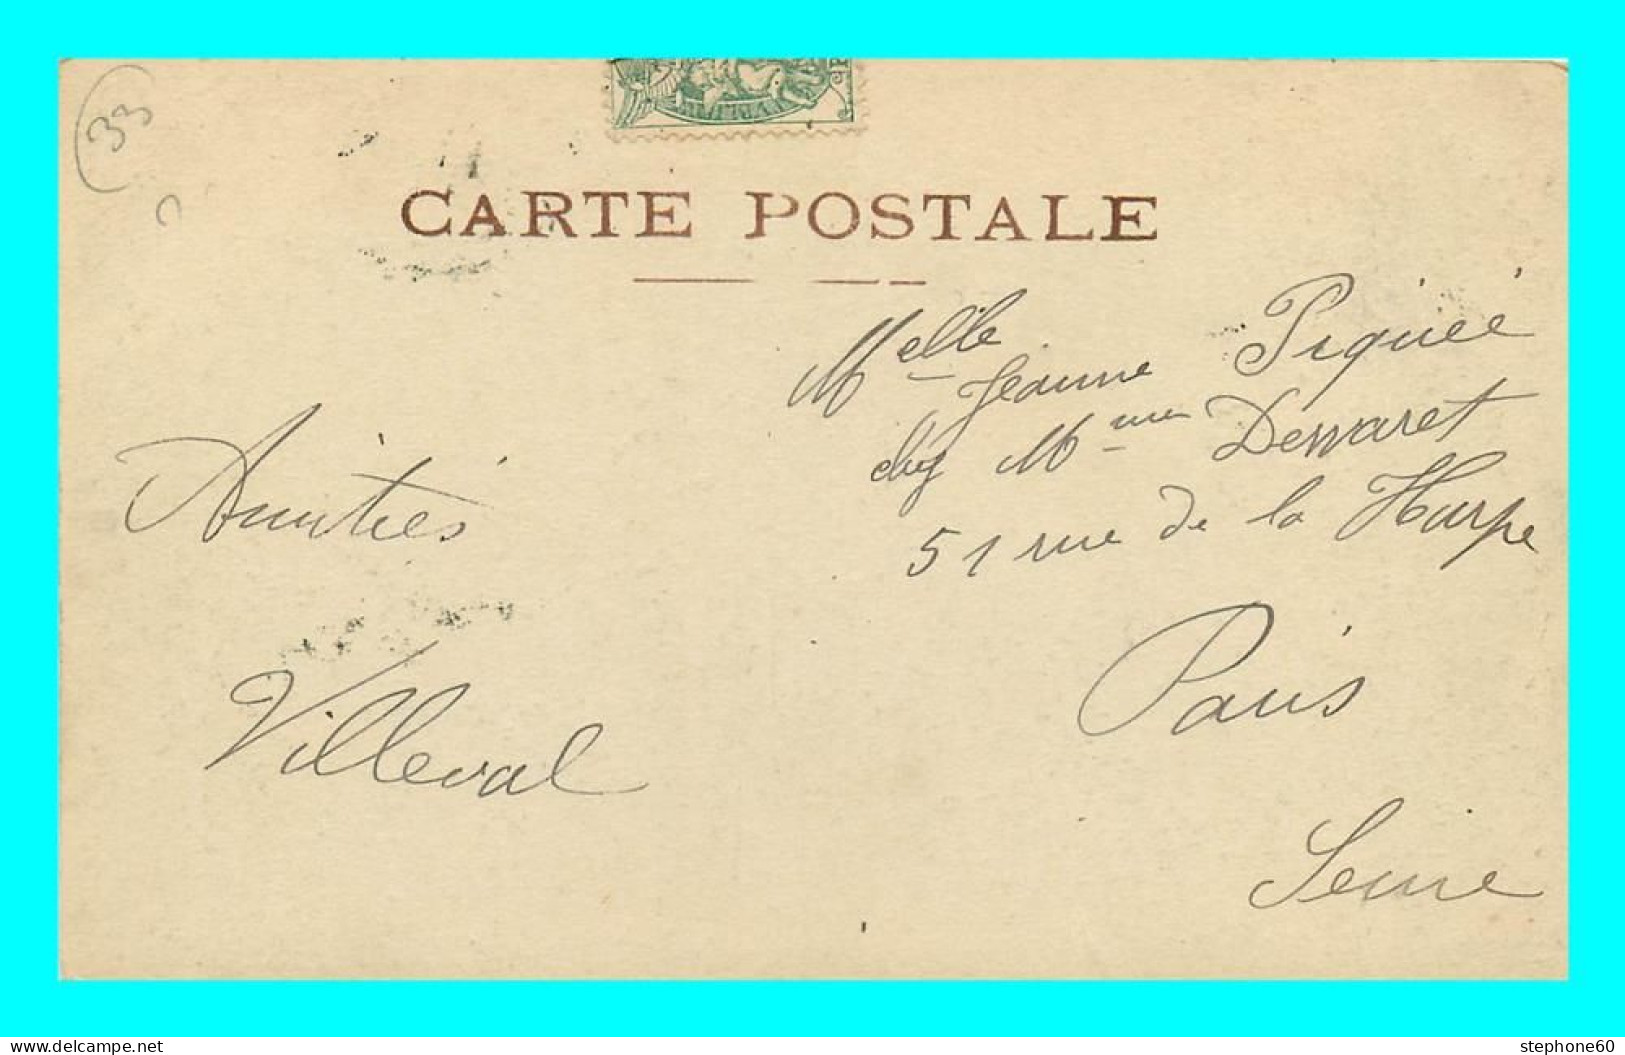 33
CARTE POSTALE
Melle Jeanne Piquée
chez Mme Desmaret
51 rue de la Harpe
Paris
Seine
Amitiés
Villeval
www.delcampe.net
stephone60